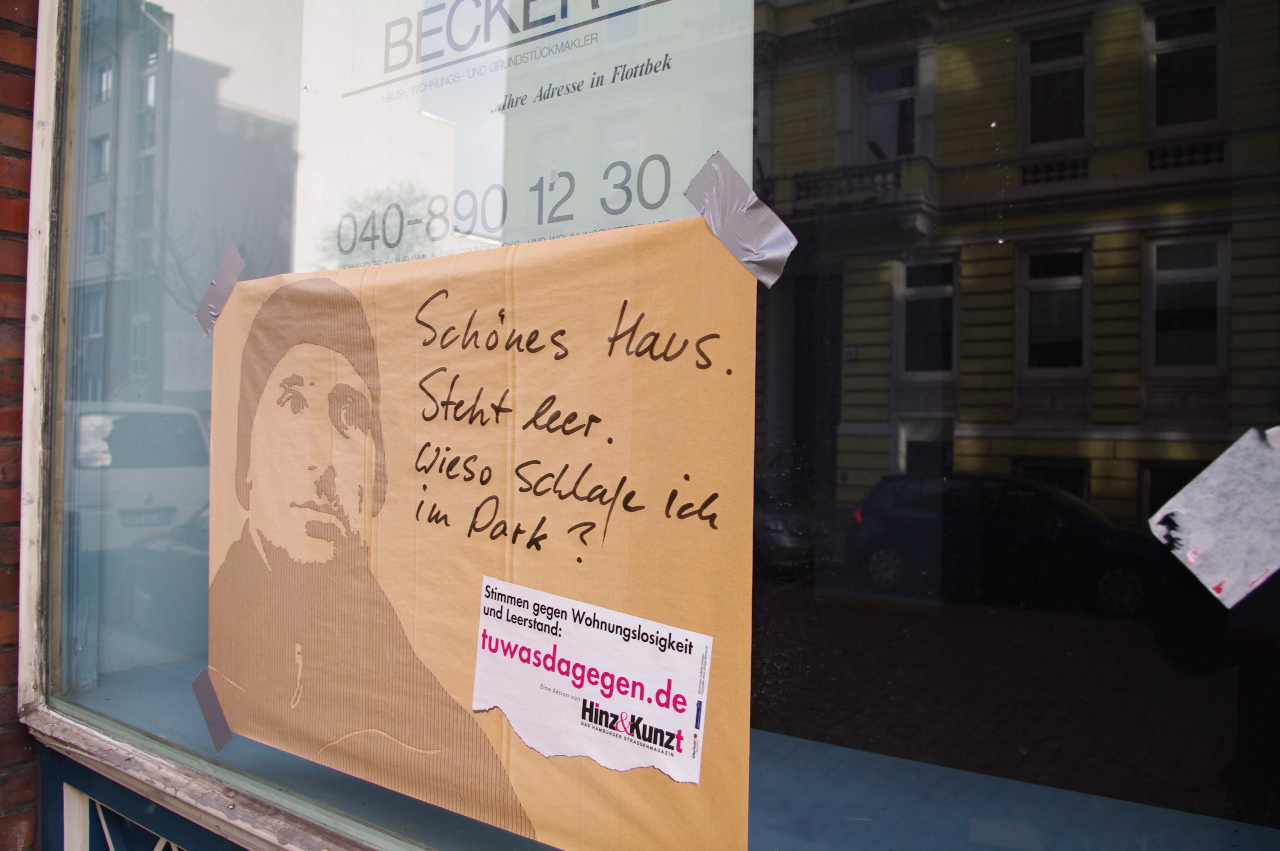 BECKER
HAUS-, WOHNUNGS- UND GRUNDSTÜCKMAKLER
...Ihre Adresse in Flottbek
040-890 12 30
Schönes Haus.
Steht leer.
Wieso schlafe ich
im Park?
Stimmen gegen Wohnungslosigkeit
und Leerstand:
tuwasdagegen.de
Eine Aktion von
Hinz&Kunzt
DAS HAMBURGER STRASSENMAGAZIN